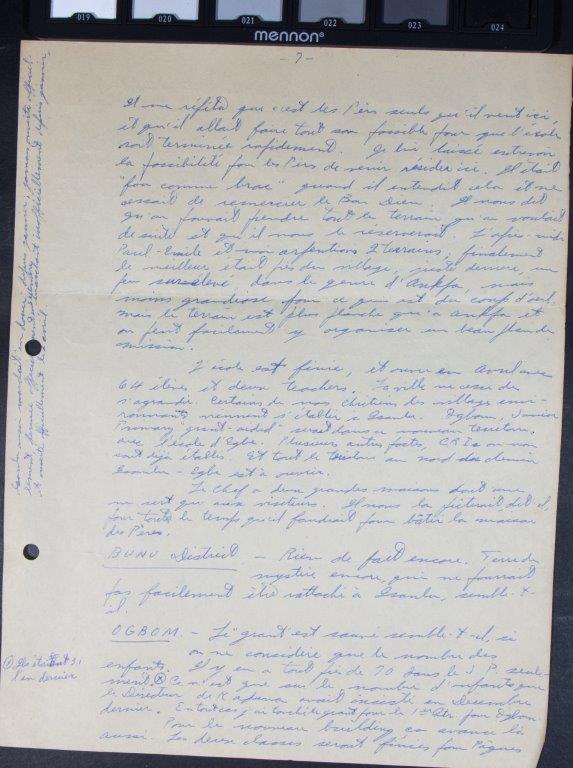 019 020 021 022 023 024
mennon®
- 7 -
Et me répéta que c'est les Pères seuls qu'il veut ici,
et qu'il allait faire tout son possible pour que l'école
soit terminée rapidement. Je lui laissé entrevoir
la possibilité pour les Pères de venir résider ici. Il était
"fou comme brac" quand il entendit cela et ne
cessait de remercier le Bon Dieu. Il nous dit
qu'on pouvait prendre tout le terrain qu'on voulait
de suite et qu'il nous le réserverait. L'après-midi
Paul-Emile et moi arpentions 2 terrains, finalement
le meilleur était près du village, juste derrière, un
peu surélevé, dans le genre d'Ankpa, mais
moins grandiose pour ce qui est du coup d'oeil
mais le terrain est plus planche qu'à Ankpa et
on peut facilement y organiser un beau plan de
mission.
L'école est finie, et ouvre en avril avec
64 élèves et deux teachers. La ville ne cesse de
s'agrandir. Certains de nos chrétiens des villages envi-
ronnants viennent s'établir à Isanlu. Junior
Primary "grant-aided" serait dans ce nouveau territoire
avec l'école d'Egbe. Plusieurs autres posts, CRIs on non
sont déjà établis. Et tout le territoire au nord du chemin
Isanlu - Egbe est à ouvrir.
Le Chef a deux grandes maisons dont une
ne sert que aux visiteurs. Il nous la prêterait dit-il,
pour tout le temps qu'il faudrait pour bâtir la maison
des Pères.
BUNU District. - Rien de fait encore. Terre de
mystère encore, qui ne pourrait
pas facilement être rattaché à Isanlu, semble-t-
il.
OGBOM. - Le grant est sauvé semble-t-il, si
on ne considère que le nombre des
enfants. Il y en a tout près de 70 dans le J.P. seule-
ment. Ce n'est que sur le nombre d'enfants que
le Directeur de Kaduna avait insisté en Décembre
dernier. En tout cas j'ai touché le grant pour le 1er qtr pour Ogbom
Pour le nouveau building ça avance là
aussi. Les deux classes seront finies pour Pâques
Ils étaient 31
l'an dernier
Isanlu
depuis janvier